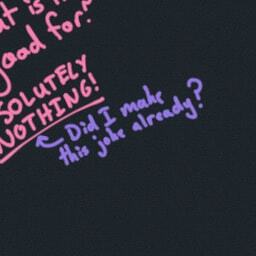 at is
good for?"
SOLUTELY
NOTHING!
Did I make
this joke already?